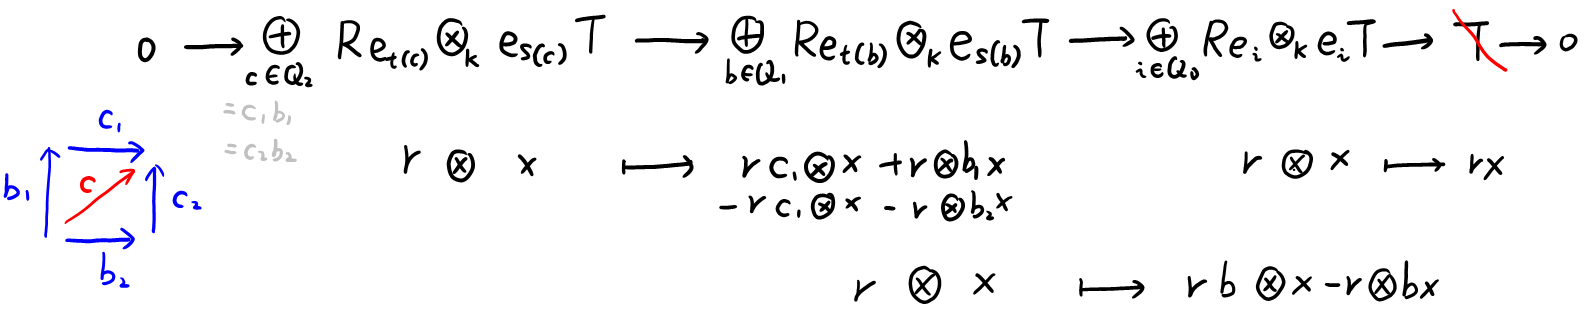 0 → ⊕_{c∈Q₂} Re_{t(c)} ⊗_k e_{s(c)}T → ⊕_{b∈Q₁} Re_{t(b)} ⊗_k e_{s(b)}T → ⊕_{i∈Q₀} Re_i ⊗_k e_iT → T → 0
= c₁b₁
= c₂b₂
c₁
b₁ c c₂
b₂
r ⊗ x ⟼ rc₁⊗x + r⊗b₁x
- rc₁⊗x - r⊗b₂x
r ⊗ x ⟼ rx
r ⊗ x ⟼ rb⊗x - r⊗bx